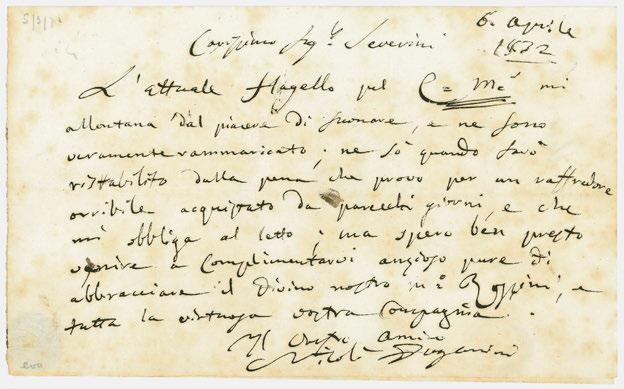 5/3/7
6. Aprile
1832
Carissimo Sigr Severini
L'attuale flagello pel C= Me mi
allontana dal piacere di suonare, e ne sono
veramente rammaricato; ne sò quando sarò
ristabilito dalla pena che provo per un raffredore
orribile acquistato da parecchi giorni, e che
mi obbliga al letto; ma spero ben presto
venire a Complimentarvi ansioso pure di
abbracciare il divino nostro Mo Rossini, e
tutta la virtuosa vostra Compagnia.
Il vostro amico
Nicolò Paganini